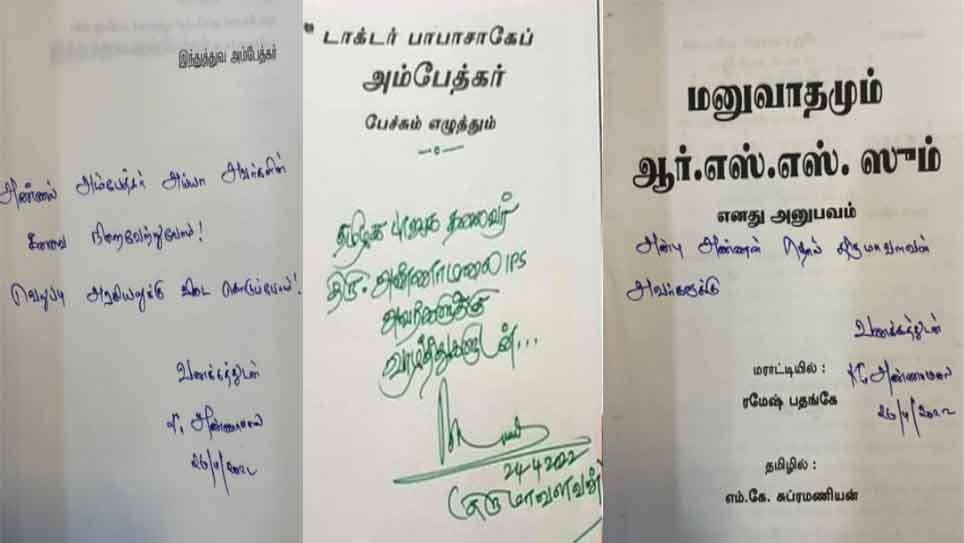 இந்துத்துவ அம்பேத்கர்
அண்ணல் அம்பேத்கர் அய்யா அவர்களின்
கனவை நிறைவேற்றுவோம்!
வெறுப்பு அரசியலுக்கு விடை கொடுப்போம்!
வணக்கத்துடன்
அண்ணாமலை
டாக்டர் பாபாசாகேப்
அம்பேத்கர்
பேச்சும் எழுத்தும்
தமிழக பாஜக தலைவர்
திரு. அண்ணாமலை IPS
அவர்களுக்கு
வாழ்த்துகளுடன்...
24-4-2022
(திருமாவளவன்)
மனுவாதமும்
ஆர்.எஸ்.எஸ். ஸும்
எனது அனுபவம்
அன்பு அண்ணன் தொல் திருமாவளவன்
அவர்களுக்கு
வணக்கத்துடன்
மராட்டியில் :
ரமேஷ் பதங்கே
அண்ணாமலை
தமிழில் :
எம்.கே. சுப்ரமணியன்